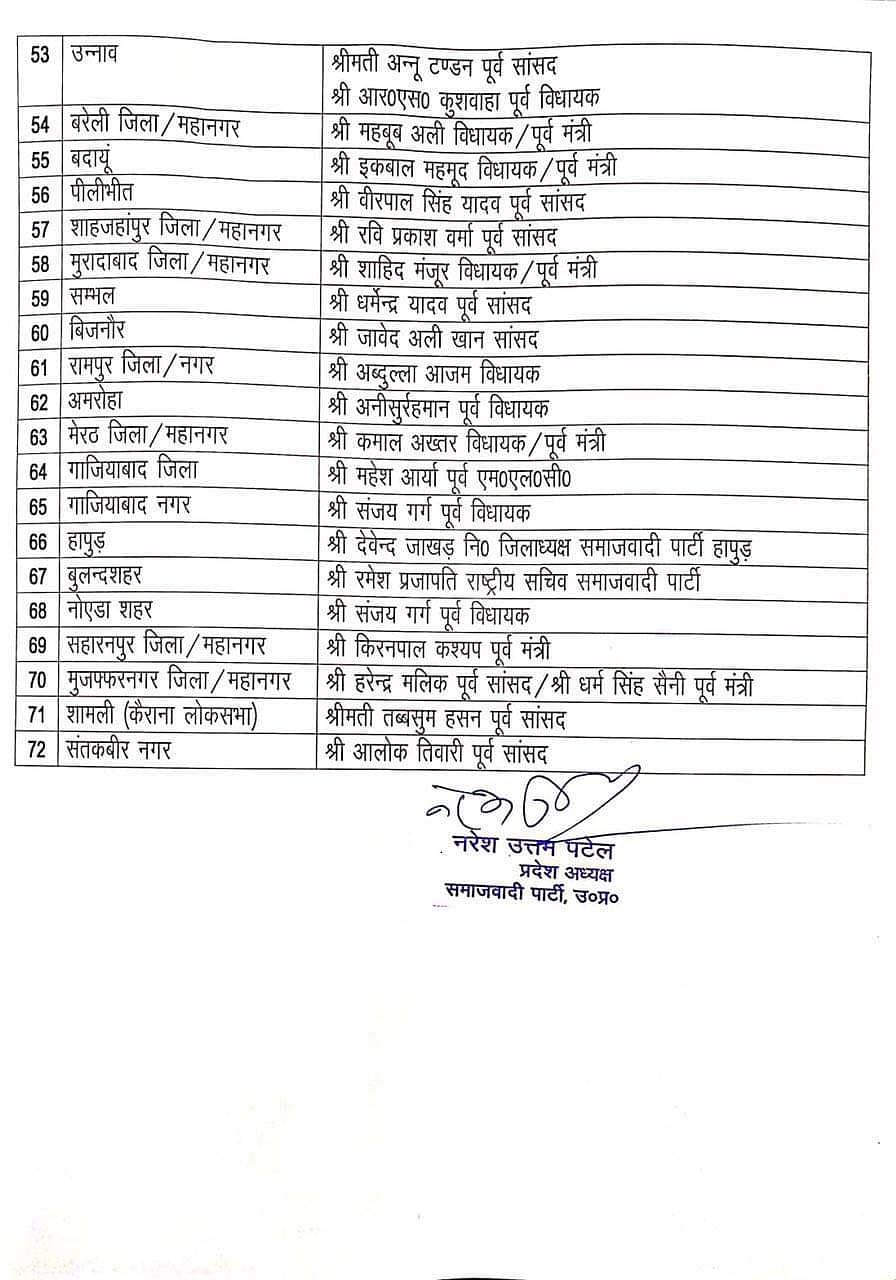 53 उन्नाव श्रीमती अन्नू टण्डन पूर्व सांसद
श्री आर0एस0 कुशवाहा पूर्व विधायक
54 बरेली जिला/महानगर श्री महबूब अली विधायक/पूर्व मंत्री
55 बदायूं श्री इकबाल महमूद विधायक/पूर्व मंत्री
56 पीलीभीत श्री वीरपाल सिंह यादव पूर्व सांसद
57 शाहजहांपुर जिला/महानगर श्री रवि प्रकाश वर्मा पूर्व सांसद
58 मुरादाबाद जिला/महानगर श्री शाहिद मंजूर विधायक/पूर्व मंत्री
59 सम्भल श्री धर्मेन्द्र यादव पूर्व सांसद
60 बिजनौर श्री जावेद अली खान सांसद
61 रामपुर जिला/नगर श्री अब्दुल्ला आजम विधायक
62 अमरोहा श्री अनीसुर्रहमान पूर्व विधायक
63 मेरठ जिला/महानगर श्री कमाल अख्तर विधायक/पूर्व मंत्री
64 गाजियाबाद जिला श्री महेश आर्या पूर्व एम0एल0सी0
65 गाजियाबाद नगर श्री संजय गर्ग पूर्व विधायक
66 हापुड़ श्री देवेन्द जाखड़ नि0 जिलाध्यक्ष समाजवादी पार्टी हापुड़
67 बुलन्दशहर श्री रमेश प्रजापति राष्ट्रीय सचिव समाजवादी पार्टी
68 नोएडा शहर श्री संजय गर्ग पूर्व विधायक
69 सहारनपुर जिला/महानगर श्री किरनपाल कश्यप पूर्व मंत्री
70 मुजफ्फरनगर जिला/महानगर श्री हरेन्द्र मलिक पूर्व सांसद/श्री धर्म सिंह सैनी पूर्व मंत्री
71 शामली (कैराना लोकसभा) श्रीमती तब्बसुम हसन पूर्व सांसद
72 संतकबीर नगर श्री आलोक तिवारी पूर्व सांसद
नरेश उत्तम पटेल
प्रदेश अध्यक्ष
समाजवादी पार्टी, उ०प्र०